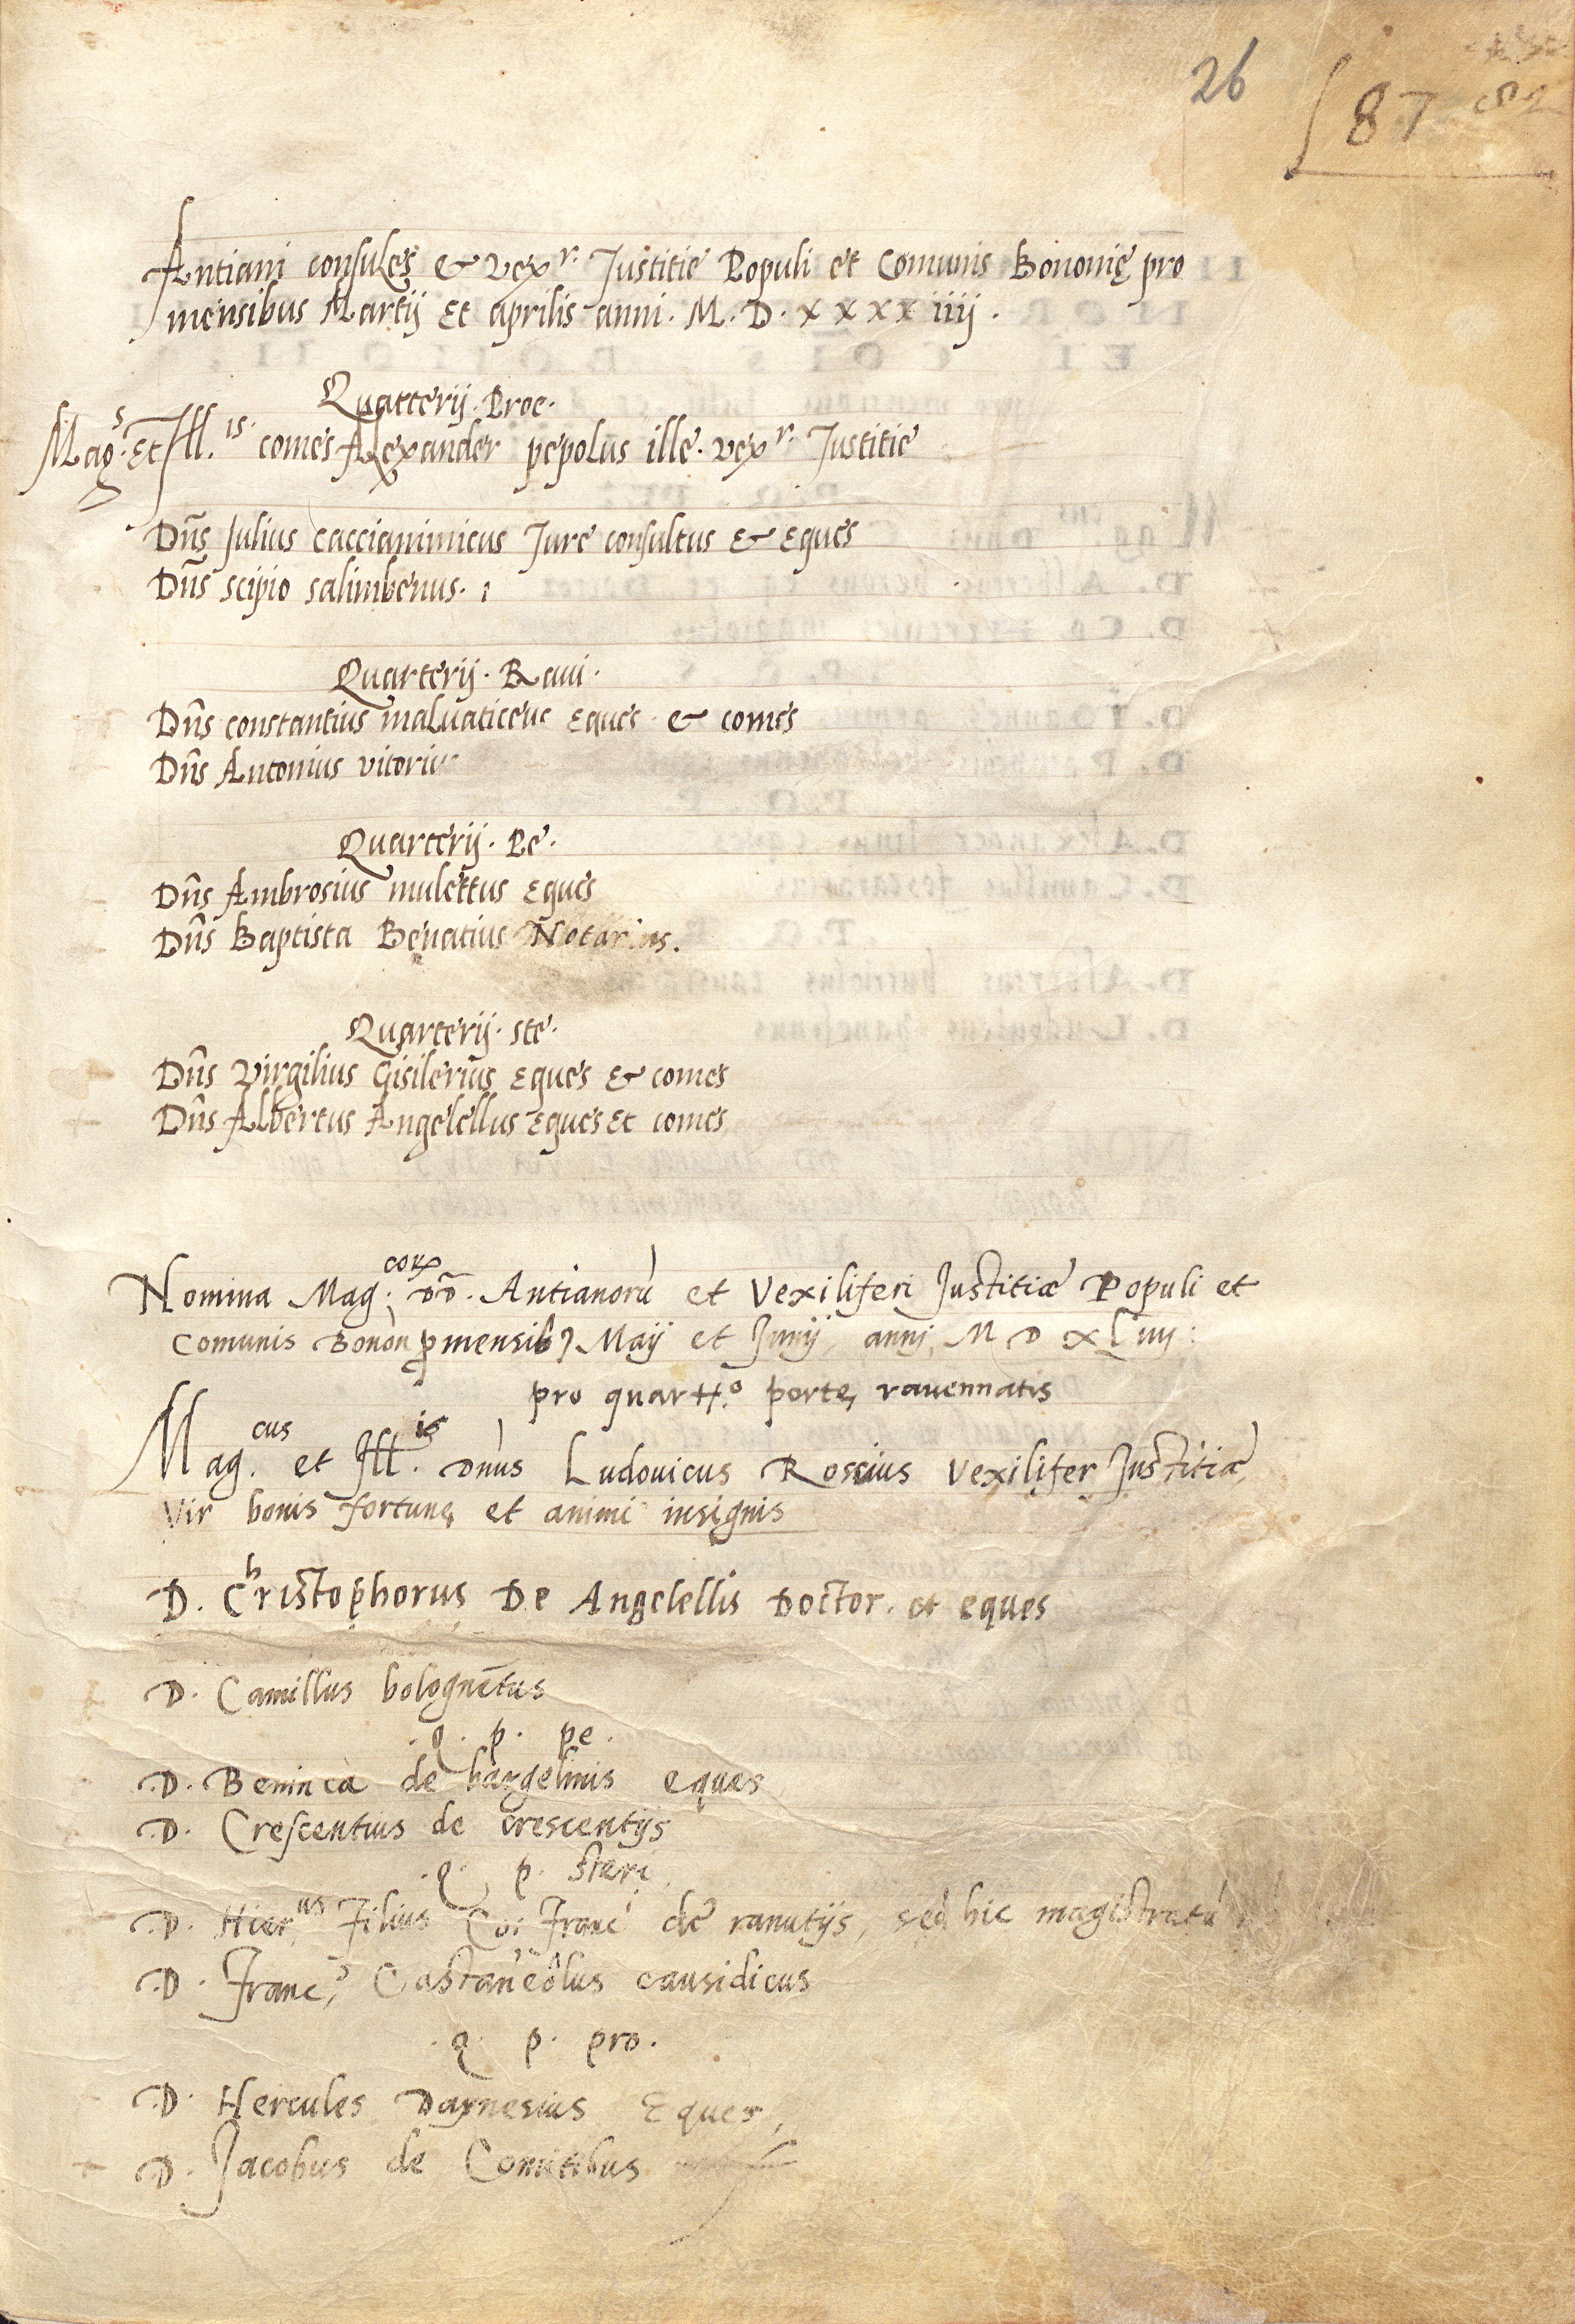 26
87
Antiani consules & vexr. Justitie Populi et Comunis Bononię pro
mensibus Martij Et aprilis anni. M. D. xxxxiiij.
Quarterij. Proc.
Mags. Et Ill.is. comes Alexander pepolus ille. vexr. Justitie
Dñs Julius caccianimicus Jure consultus & Eques
Dñs scipio salimbenus.
Quarterij. Raui.
Dñs constantius maluaticeus Eques & comes
Dñs Antonius vitorius
Quarterij. Pe.
Dñs Ambrosius mulettus Eques
Dñs Baptista Benatius Notarius.
Quarterij. ste.
Dñs Virgilius Gisilerius Eques & comes
Dñs Albertus Angelellus Eques Et comes
Nomina Mag.corꝝ DD. Antianorū et Vexiliferi Justitiæ Populi et
Comunis Bonon̄ ꝓ mensib' Maij et Junij annj M D XLiiij:
pro quartro. portę rauennatis
Mag.cus et Ill.is Dnus Ludouicus Roscius Vexilifer Justitiæ,
Vir bonis fortunę et animi insignis
D. Christophorus De Angelellis Doctor. et eques
D. Camillus bolognētus
.q. p. pe.
D. Beninca de bargelinis eques
D. Crescentius de crescentijs
.q. p. steri
D. Hier.us Filius Co: Franci de ranutijs, sed hic magistratū
D. Franc.s Castaneolus causidicus
.q. p. pro.
D. Hercules Dagnesius Eques,
D. Jacobus de Comitibus